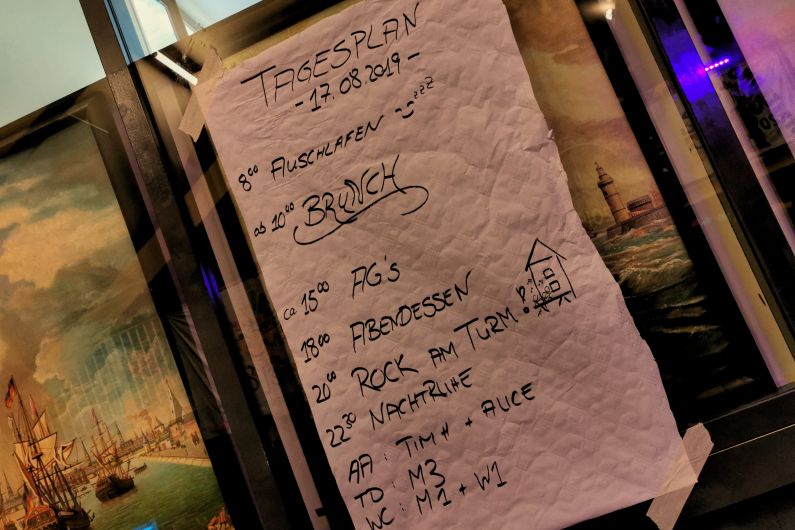 TAGESPLAN
- 17.08.2019 -
8⁰⁰ AUSCHLAFEN zzz
ab 10⁰⁰ BRUNCH
ca 15⁰⁰ AG's
18⁰⁰ ABENDESSEN
20⁰⁰ ROCK AM TURM!
22³⁰ NACHTRUHE
AA: TIM H + ALICE
TD: M3
WC: M1 + W1